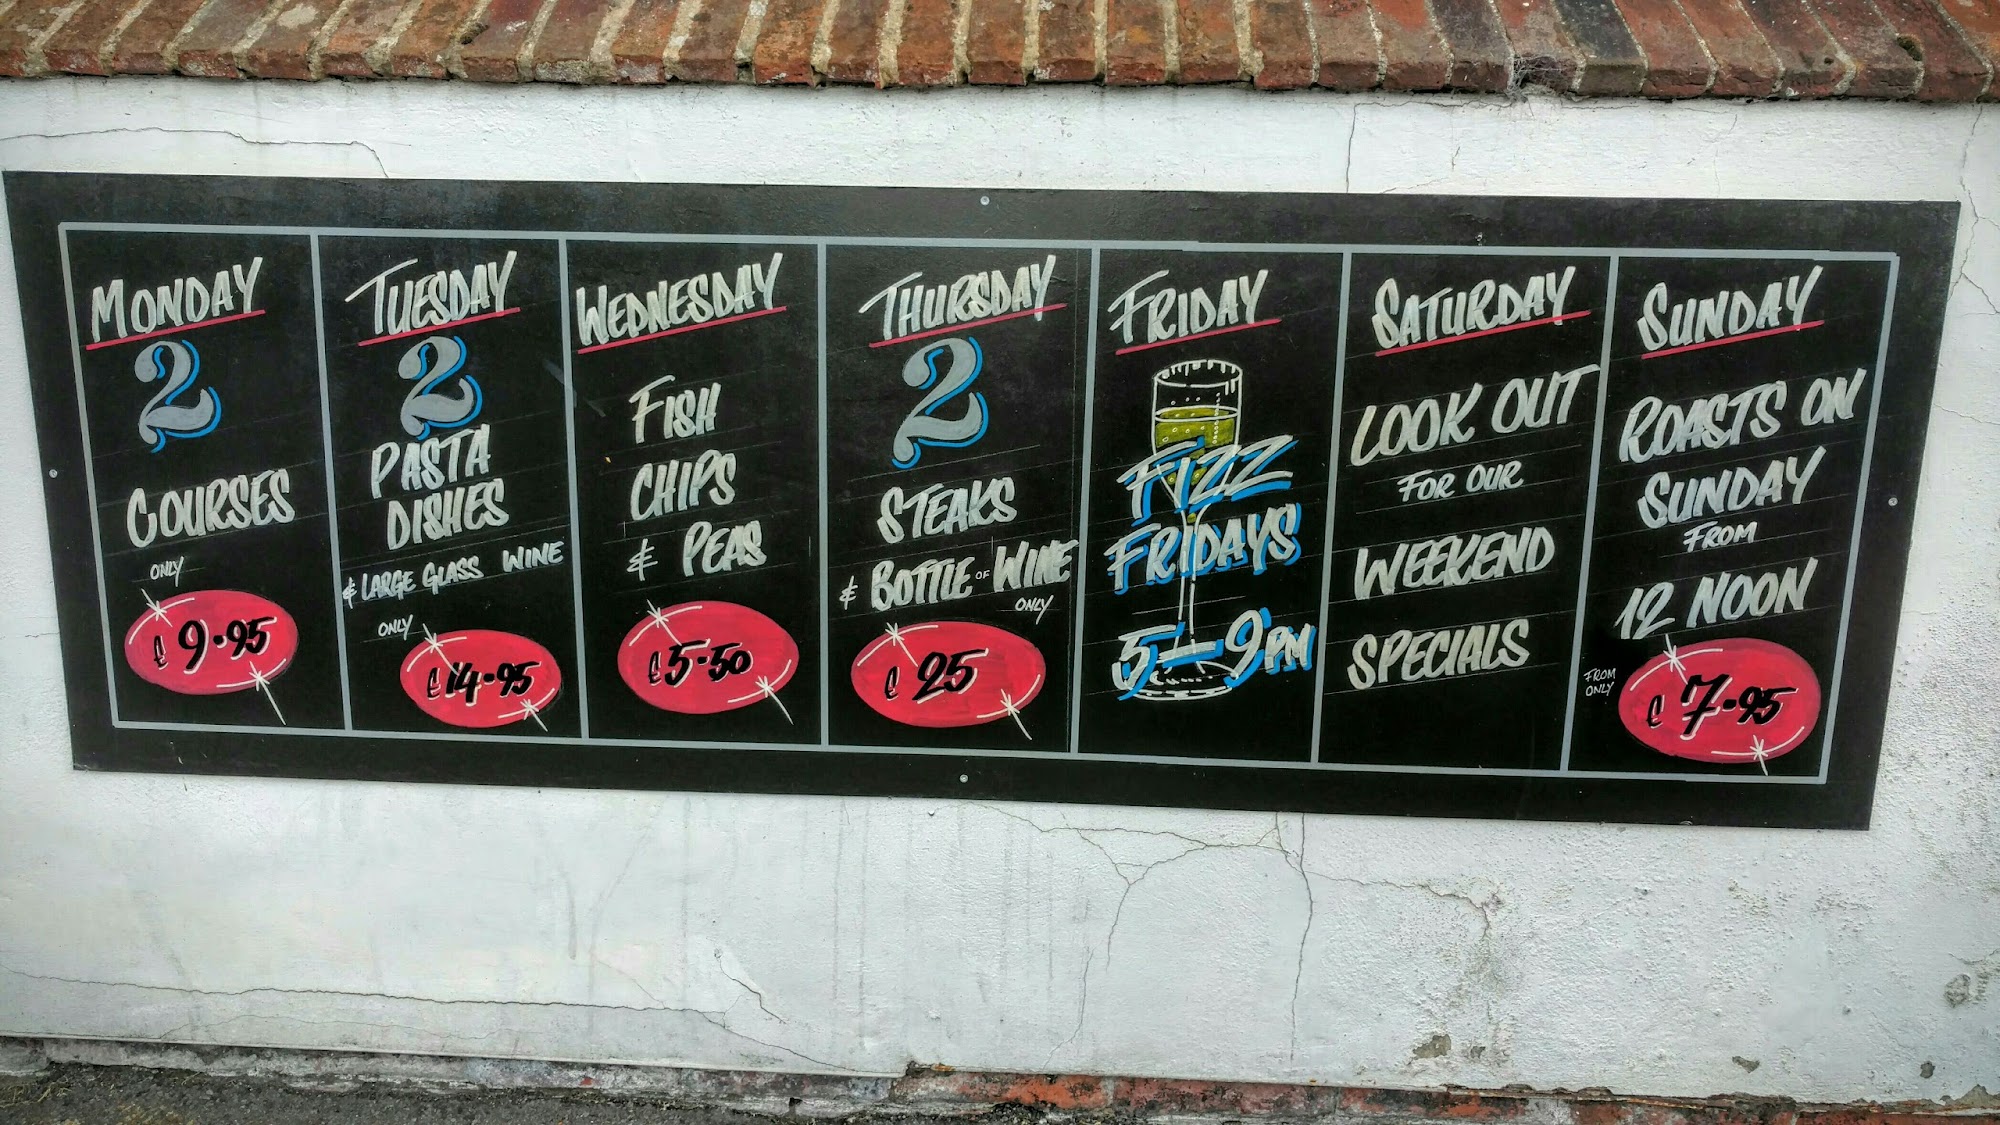 MONDAY
2
COURSES
ONLY
£9.95
TUESDAY
2
PASTA
DISHES
& LARGE GLASS WINE
ONLY
£14.95
WEDNESDAY
FISH
CHIPS
& PEAS
£5.50
THURSDAY
2
STEAKS
& BOTTLE OF WINE
ONLY
£25
FRIDAY
FIZZ
FRIDAYS
5-9PM
SATURDAY
LOOK OUT
FOR OUR
WEEKEND
SPECIALS
SUNDAY
ROASTS ON
SUNDAY
FROM
12 NOON
FROM
ONLY
£7.95